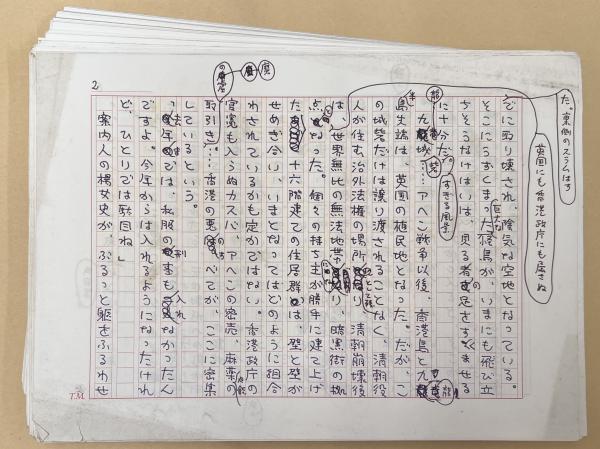 2
た。東側のスラムはす
でに取り壊され、陰気な空地となっている。
そこにうずくまった巨大な怪鳥が、いまにも飛び立
ちそうなけはいは、見る者の足をすくませる
に十分だ。すぎる風景
九龍城砦……アヘン戦争以後、香港島と九龍
半島尖端は、英国の植民地となった。だが、こ
の城砦だけは譲り渡されることなく、清朝役
人が住む治外法権の場所として残り、清朝崩壊後
は、英国にも香港政府にも属さぬ
世界無比の無法地帯になり、暗黒街の拠
点となった。個々の持ち主が勝手に建て上げ
た十六階建ての住居群は、壁と壁が
せめぎ合い、いまとなってはどのように組合
わされているかも定かではない。香港政府の
官憲も入らぬカスバ、アヘンの密売、麻薬の
取引き……香港の悪のすべてが、ここに密集
しているという。
「去年までは、私服の刑事も入れなかったん
ですよ。今年からは入れるようになったけれ
ど、ひとりでは駄目ね」
案内人の楊女史が、ぶるっと躯をふるわせ
T.M.